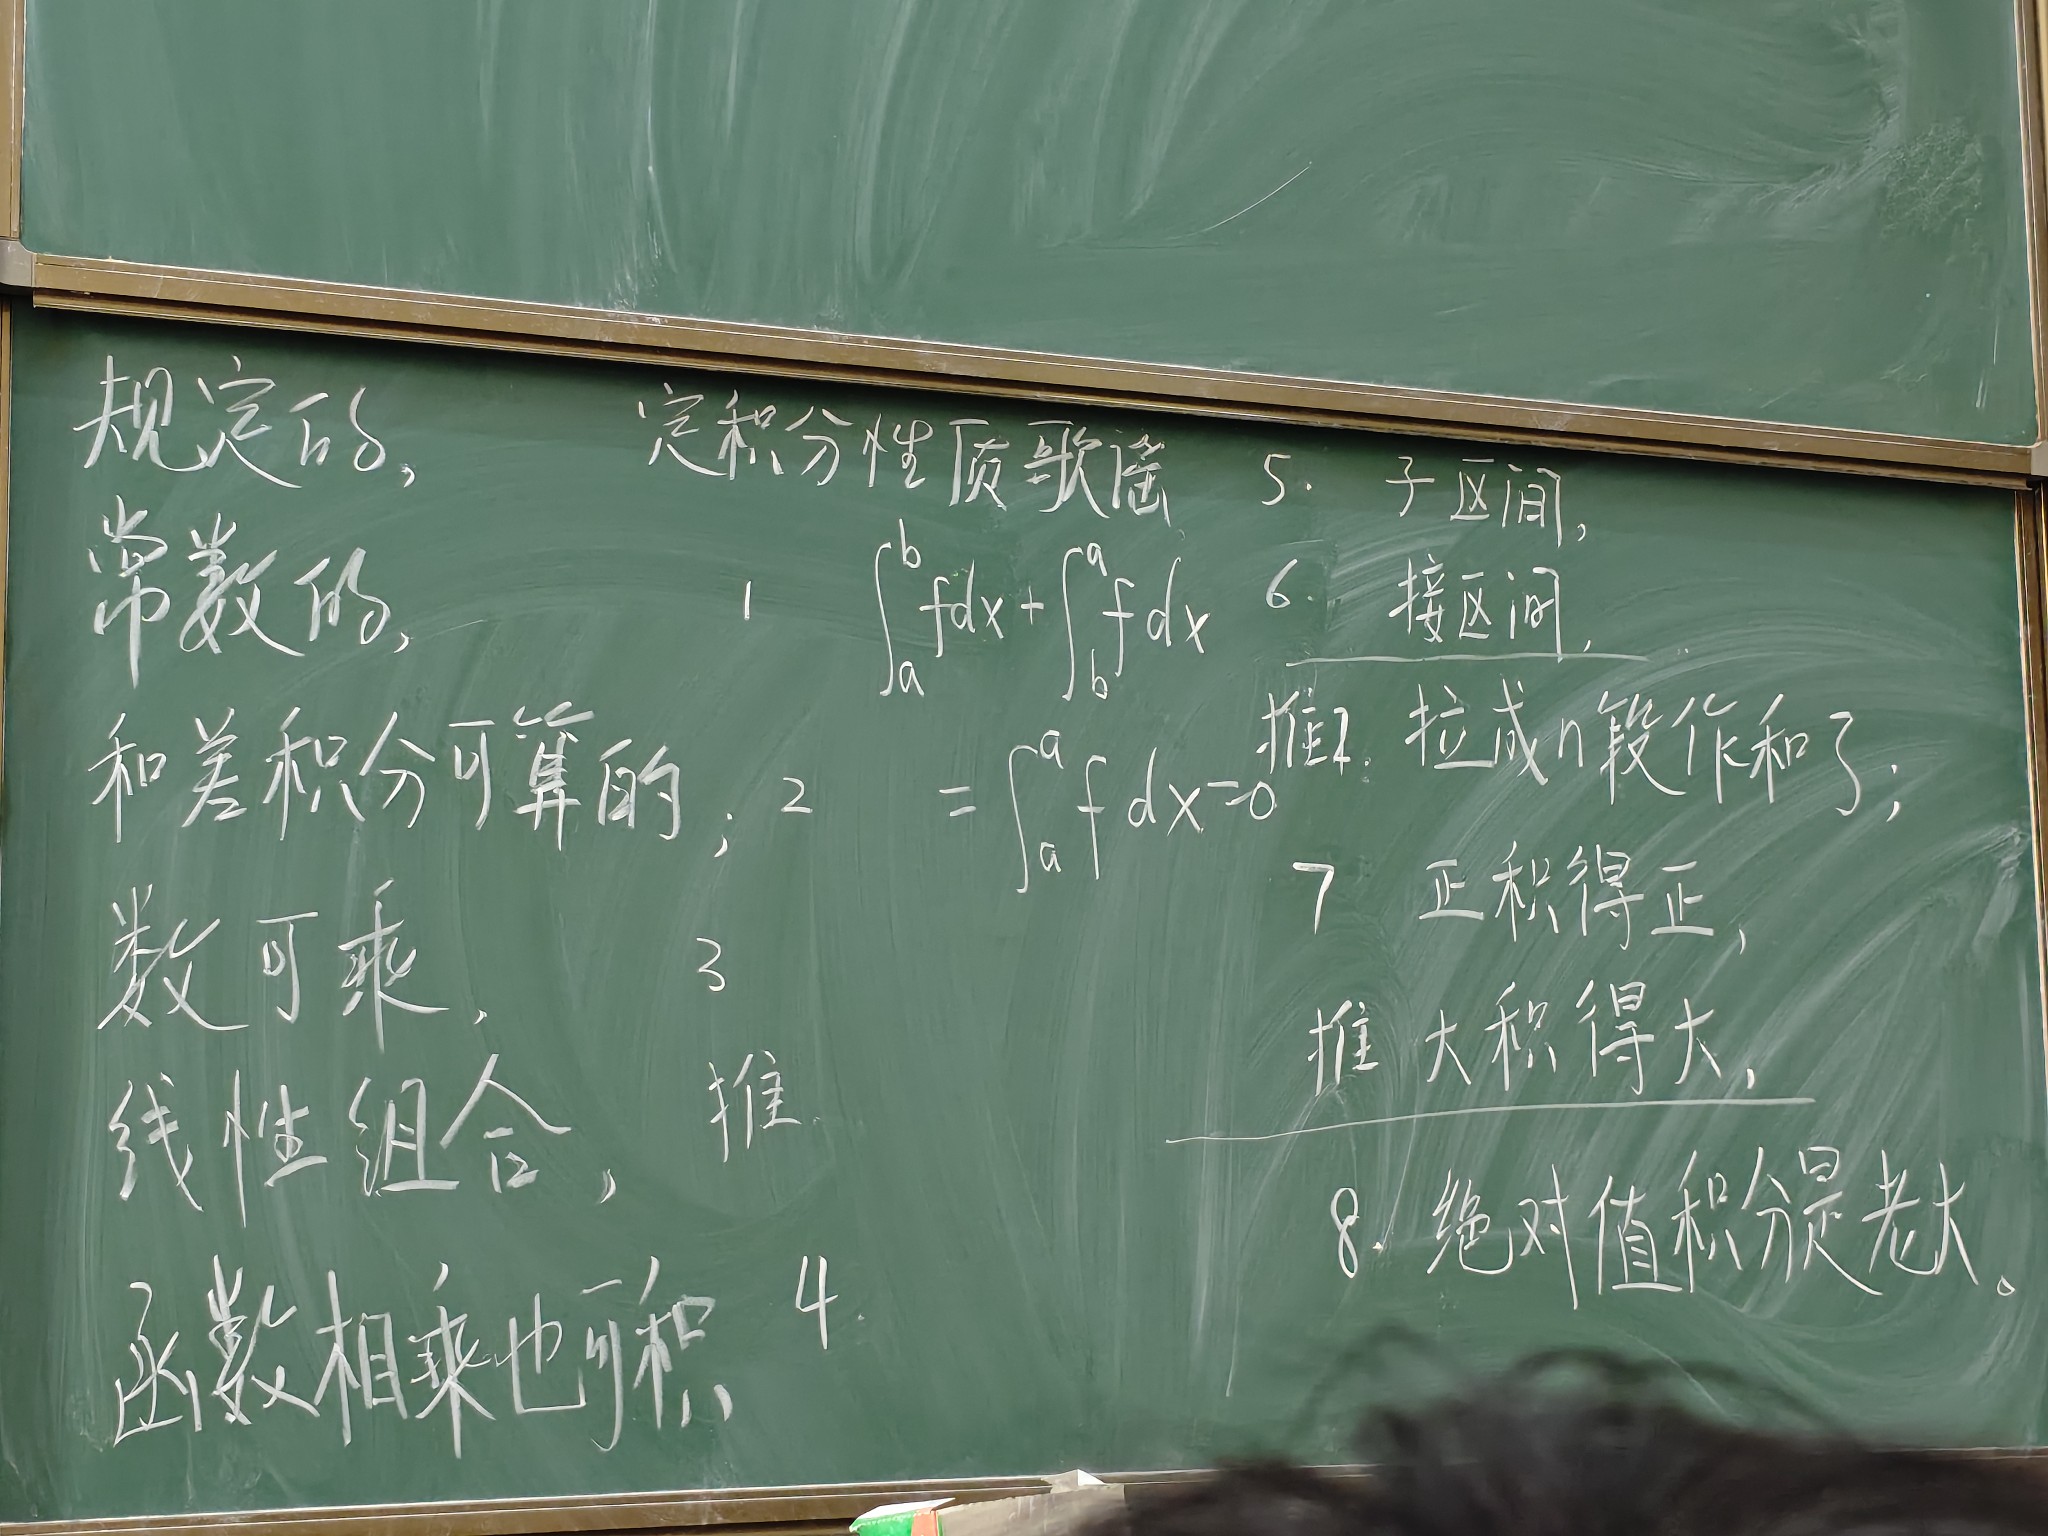 定积分性质歌谣
规定的,
常数的, 1
和差积分可算的; 2
数可乘, 3
线性组合, 推.
函数相乘也可积. 4.
∫_a^b fdx + ∫_b^a f dx
= ∫_a^a f dx = 0
5. 子区间,
6. 接区间.
推2. 拉成n段作和了;
7 正积得正,
推 大积得大,
8. 绝对值积分是老大。